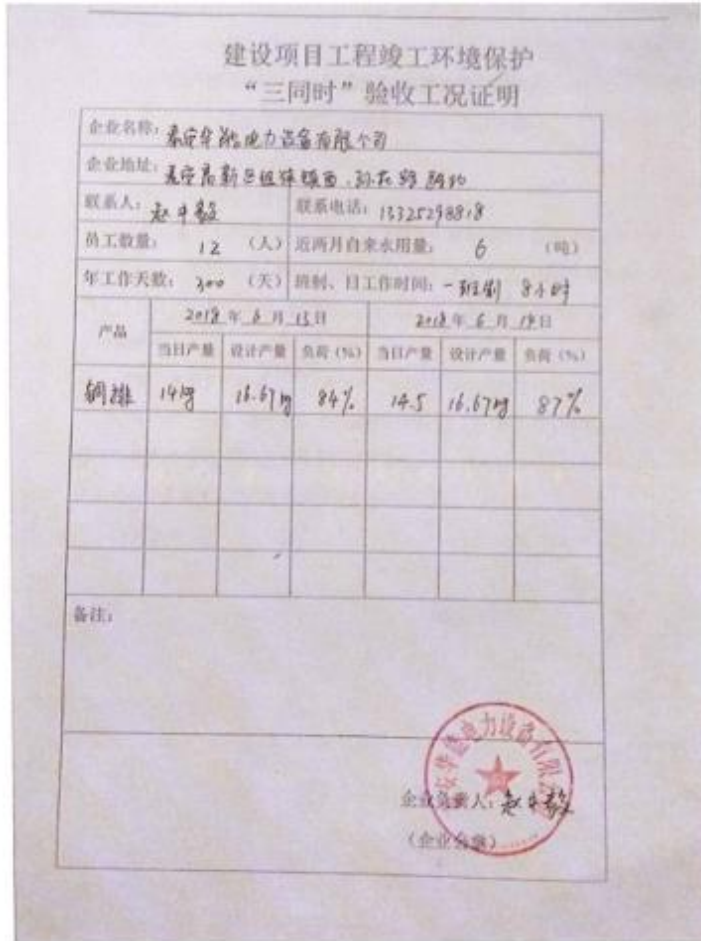 建设项目工程竣工环境保护
“三同时”验收工况证明
企业名称：泰安华能电力设备有限公司
企业地址：泰安高新区 镇西
联系人：赵 毅 联系电话：13325298818
员工数量：12（人） 近两月自来水用量：6（吨）
年工作天数：300（天） 班制、日工作时间：一班制 8小时
产品 2018年6月13日 2018年6月14日
当日产量 设计产量 负荷（%） 当日产量 设计产量 负荷（%）
铜排 14kg 16.67kg 84% 14.5 16.67kg 87%
备注：
企业负责人：赵 毅
（企业公章）